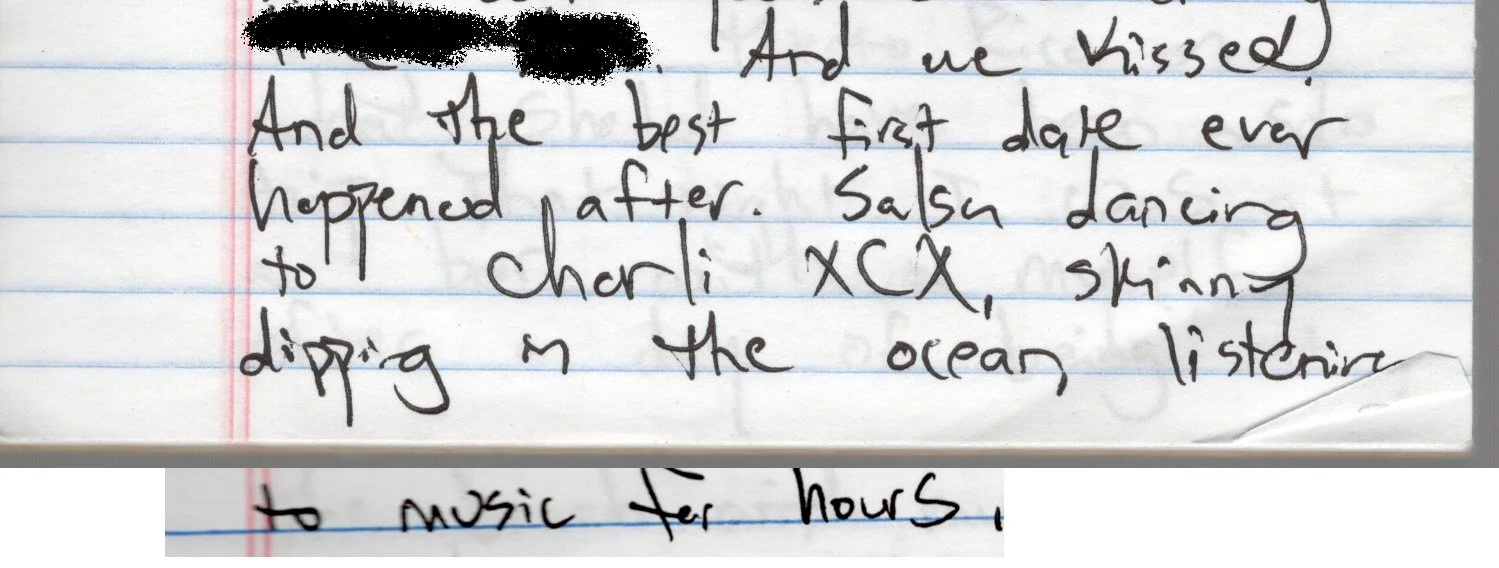 And we kissed.
And the best first date ever
happened after. Salsa dancing
to Charli XCX, skinny
dipping in the ocean, listening
to music for hours.